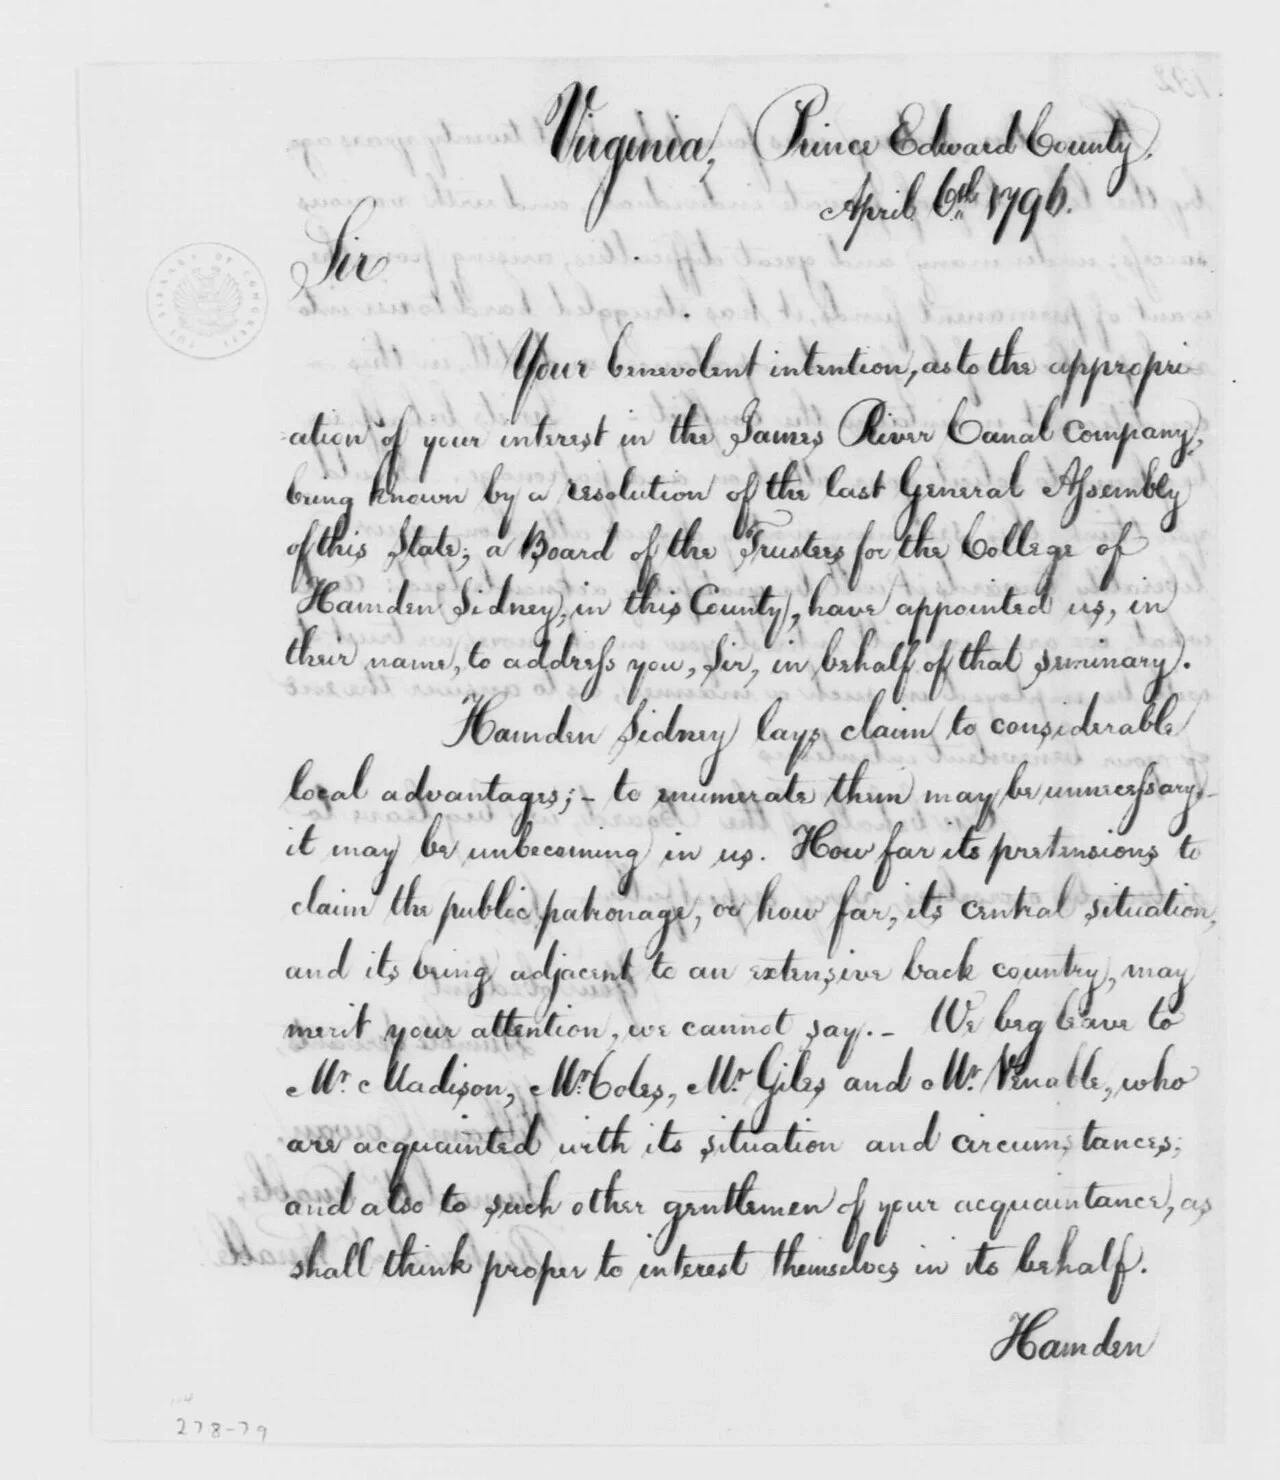 Virginia, Prince Edward County.
April 6th 1796.
Sir
THE LIBRARY OF CONGRESS
Your benevolent intention, as to the appropri-
-ation of your interest in the James River Canal Company,
being known by a resolution of the last General Assembly
of this State; a Board of the Trustees for the College of
Hamden Sidney, in this County, have appointed us, in
their name, to address you, Sir, in behalf of that seminary.
Hamden Sidney lays claim to considerable
local advantages;- to enumerate them may be unnecessary,-
it may be unbecoming in us. How far its pretensions to
claim the public patronage, or how far, its central situation,
and its being adjacent to an extensive back country, may
merit your attention, we cannot say.- We beg leave to
Mr. Madison, Mr. Coles, Mr. Giles and Mr. Venable, who
are acquainted with its situation and circumstances;
and also to such other gentlemen of your acquaintance, as
shall think proper to interest themselves in its behalf.
Hamden
278-79